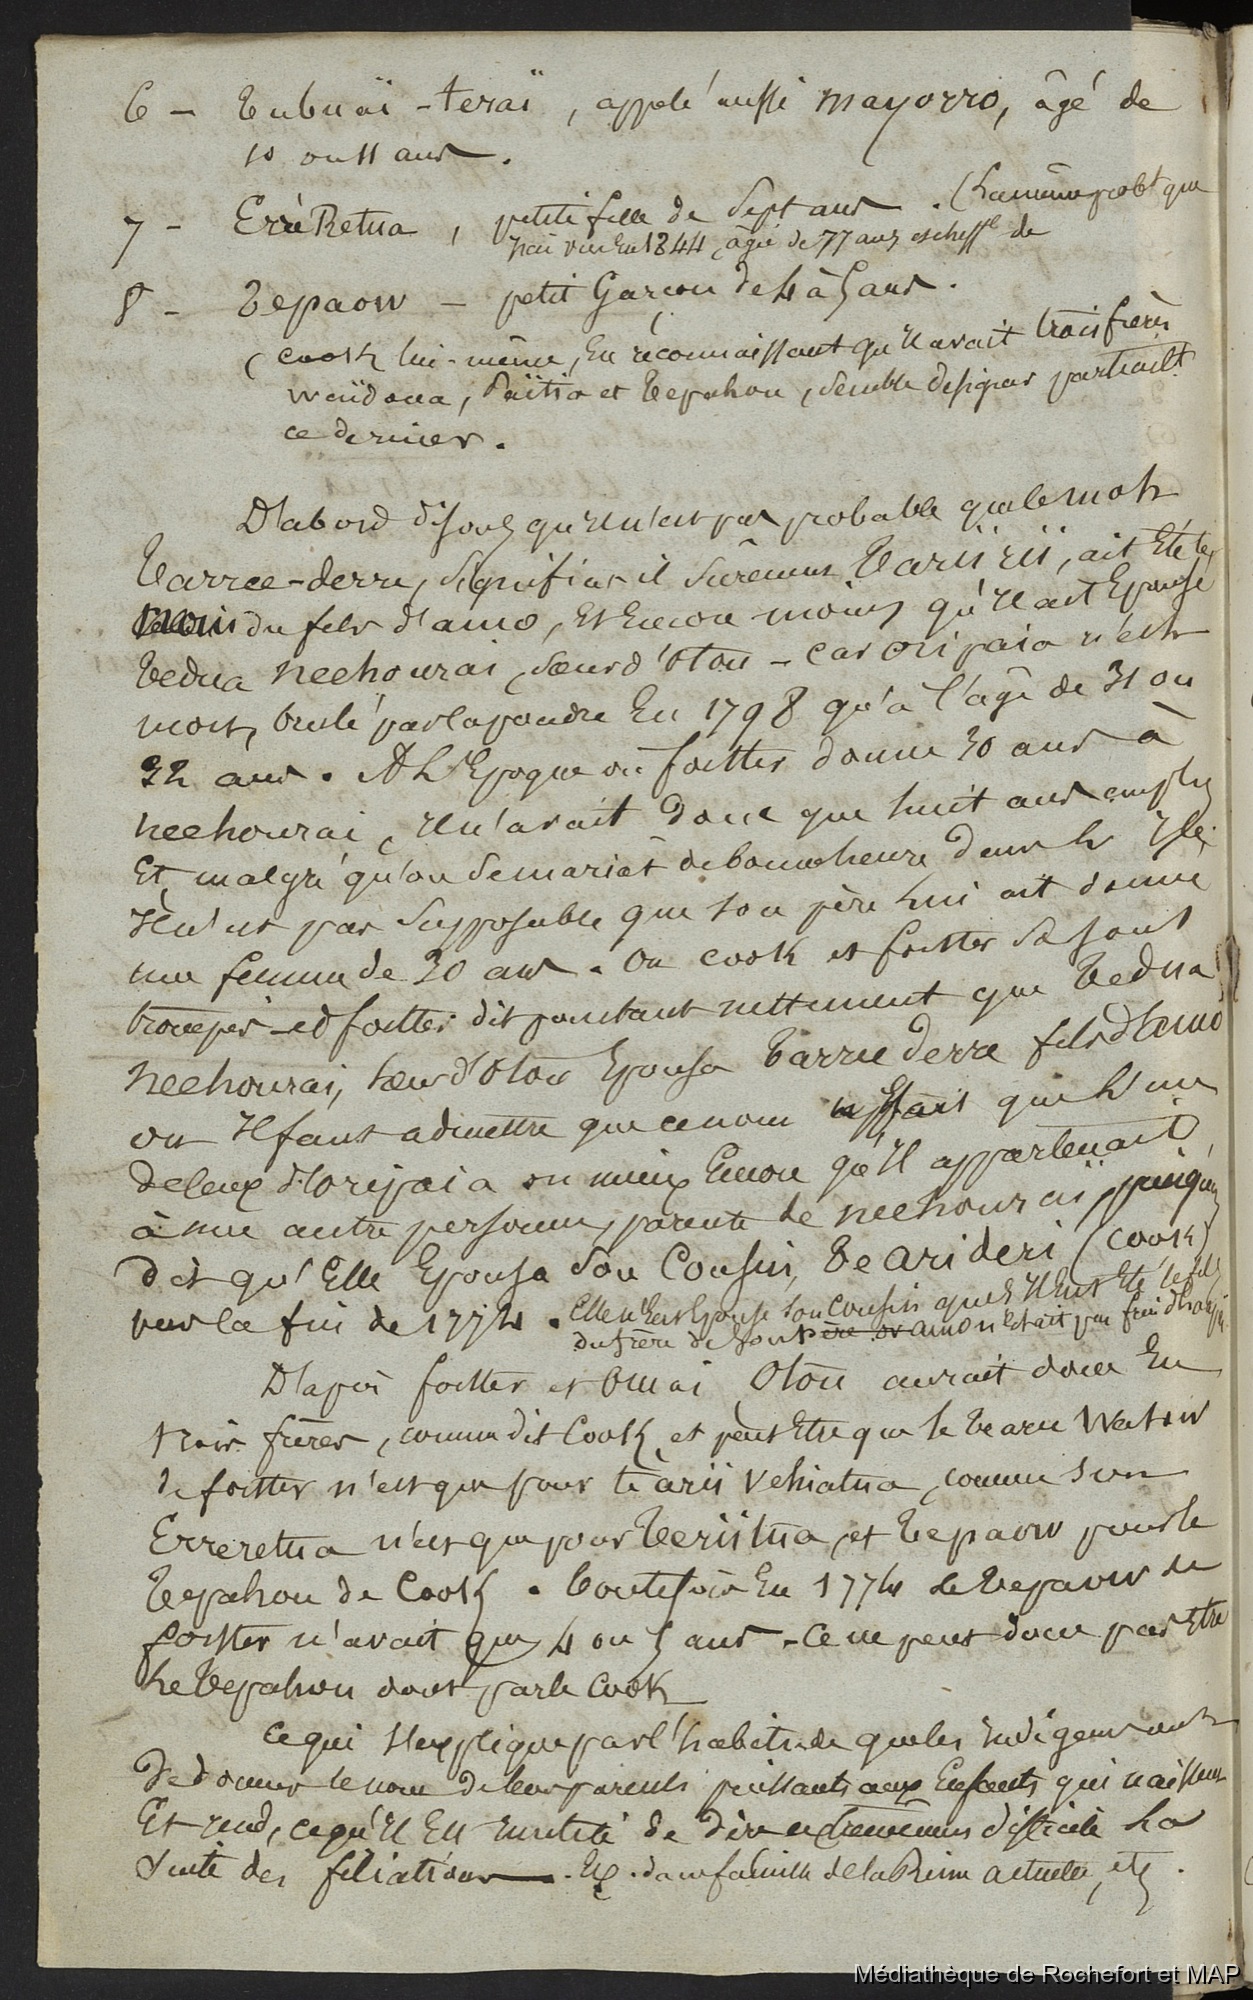 6 – Tubuaï-teraï, appelé aussi mayorro, âgé de
10 ou 11 ans.
7 – Erréretua, petite fille de sept ans. (la même probt que
j'ai vue en 1844, âgée de 77 ans et cheffe de
8 – Tepaow – petit Garçon de 4 à 5 ans.
(Cook lui-même, En reconnaissant qu'il avait trois frères
Waïdoua, Païtia et Tepahou, semble désigner partict
ce dernier.
D'abord disons qu'il n'est pas probable que le mot
Tarree-derre, signifiant il sûrement Tarii rii, ait Été le
nom du fils d'amo, Et Encore moins qu'il ait Epousé
Tedua neehourai, sœur d'Otou – Car Oripaia n'est
mort, brulé par la poudre En 1798 qu'à l'âge de 31 ou
32 ans. A l'Epoque où forster donne 30 ans à
neehourai, il n'avait donc que huit ans au plus
Et, malgré qu'on se mariât de bonne heure dans les isles
il n'est pas supposable que son père lui ait donné
une femme de 30 ans. Ou Cook et forster se sont
trompés – et forster dit pourtant nettement que Tedua
neehourai, sœur d'Otou Epousa Tarree derre fils d'amo
ou il faut admettre que ce nom n'était que l'un
de ceux d'Oripaia ou mieux Encore qu'il appartenait
à une autre personne, parente de neehouraï, puisqu'on
dit qu'Elle Epousa son Cousin, Te arideri (Cook)
vers la fin de 1774. Elle n'Eut Epousé son Cousin que s'il Eut Eté le fils
du frère de son père or amo n'était pas frère d'happaï
D'après forster et Omaï Otou aurait donc Eu
trois frères, comme dit Cook, et peut Etre que le Tearee Watow
de forster n'est que pour te arii Vehiatua, comme son
Erreretua n'est que pour Teriitua, et Tepaow pour le
Tepahou de Cook. Toutefois En 1774 le Tepaow de
forster n'avait que 4 ou 5 ans – Ce ne peut donc pas Etre
le Tepahou dont parle Cook
Ce qui s'explique par l'habitude que les indigènes ont
de donner le nom de leurs parents puissants aux Enfants qui naissent
Et rend, ce qu'il Est inutile de dire Extrêmement difficile la
suite des filiations – Ex. dans famille de la Reine actuelle, etc.
Médiathèque de Rochefort et MAP